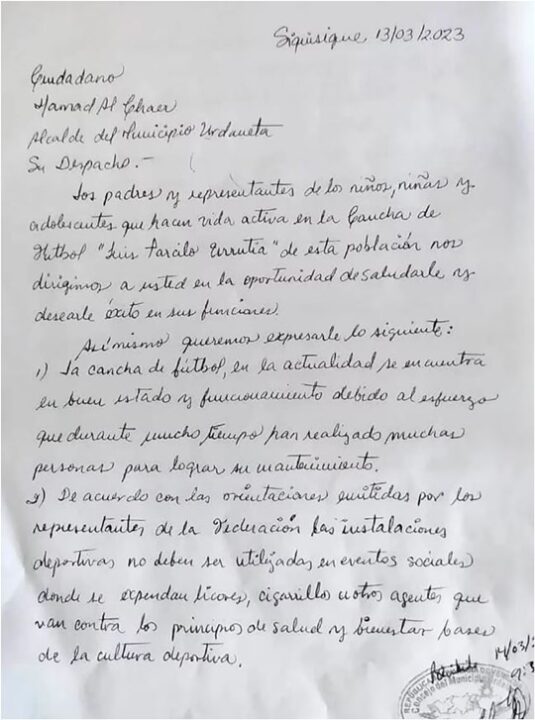 Siquisique 13/03/2023
Ciudadano
Hamad Al Chaer
Alcalde del Municipio Urdaneta
Su Despacho.-
Los padres y representantes de los niños, niñas y
adolescentes que hacen vida activa en la Cancha de
Fútbol "Luis Tarcilo Urrutia" de esta población nos
dirigimos a usted en la oportunidad de saludarle y
desearle éxito en sus funciones.
Asimismo queremos expresarle lo siguiente:
1) La cancha de fútbol, en la actualidad se encuentra
en buen estado y funcionamiento debido al esfuerzo
que durante mucho tiempo han realizado muchas
personas para lograr su mantenimiento.
2) De acuerdo con las orientaciones emitidas por los
representantes de la Federación las instalaciones
deportivas no deben ser utilizadas en eventos sociales
donde se expendan licores, cigarrillos u otros agentes que
van contra los principios de salud y bienestar bases
de la cultura deportiva.
Recibido 14/03/2
9:3
Concejo del Municipio